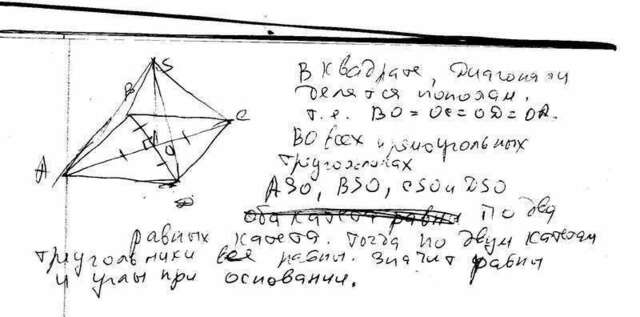 S
B
C
A
O
D
В квадрате, диагонали
делятся пополам.
т.е. BO = OC = OD = OA.
Во всех прямоугольных
треугольниках
ASO, BSO, CSO и DSO
оба катета равны по два
равных катета. Тогда по двум катетам
треугольники все равны. Значит равны
и углы при основании.